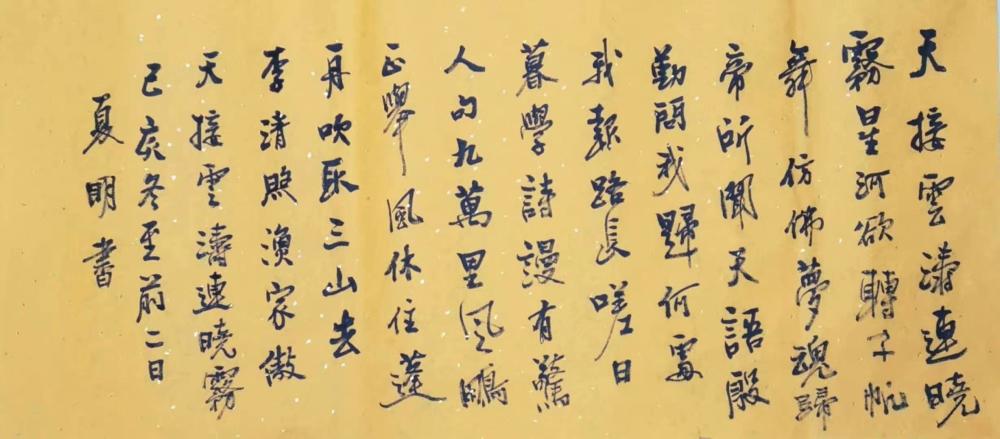 天接雲濤連曉
霧星河欲轉千帆
舞仿佛夢魂歸
帝所聞天語殷
勤問我歸何處
我報路長嗟日
暮學詩謾有驚
人句九萬里風鵬
正舉風休住蓬
舟吹取三山去
李清照漁家傲
天接雲濤連曉霧
己亥冬至前二日
夏明書